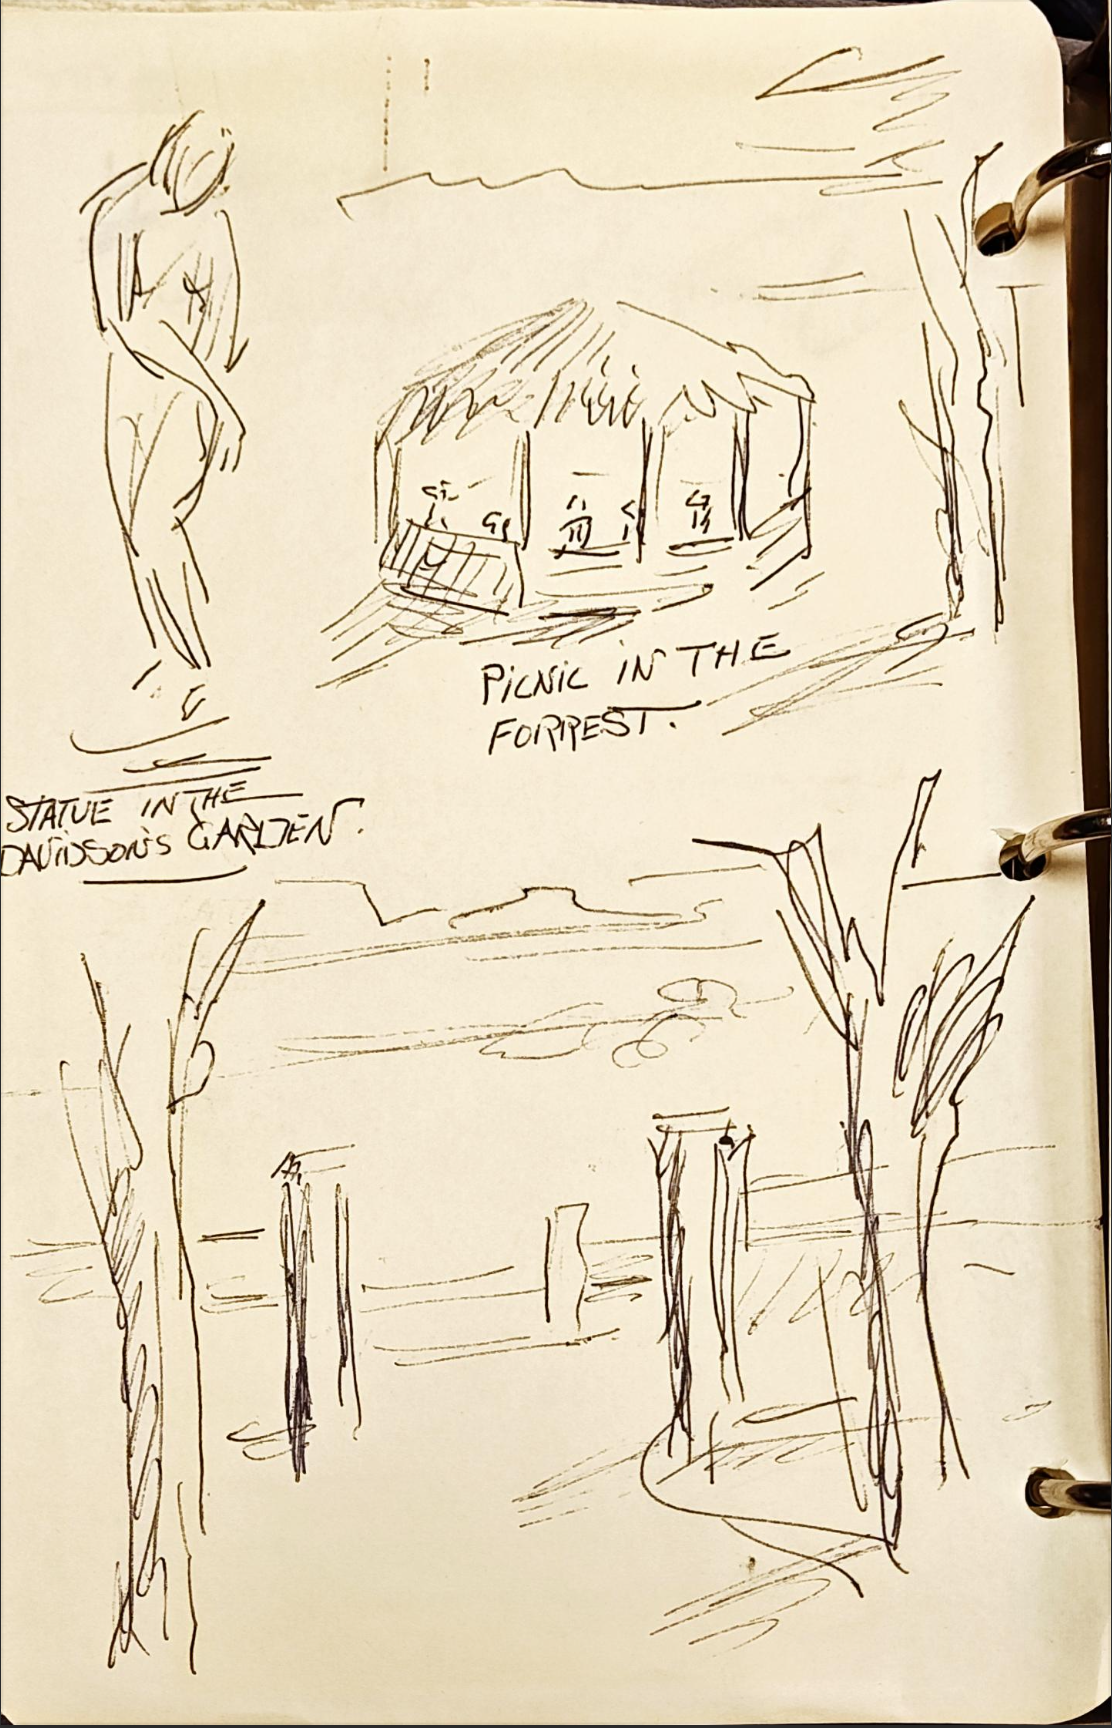 PiCNiC IN THE
FORREST.
STATUE IN THE
DAViDSON'S GARDEN.